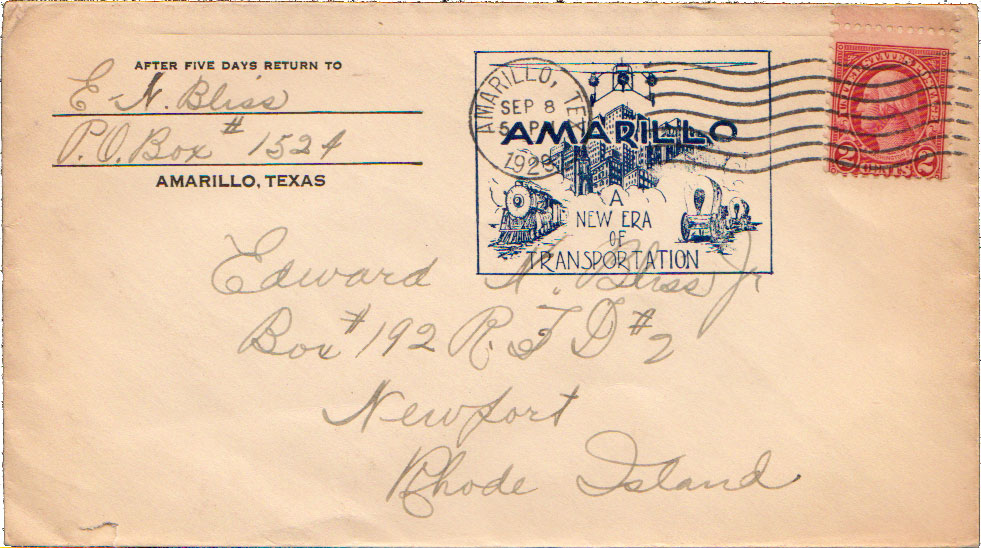 AFTER FIVE DAYS RETURN TO
E. N. Bliss
P.O. Box # 1524
AMARILLO, TEXAS
AMARILLO, TEX
SEP 8
5 P
1928
AMARILLO
A
NEW ERA
OF
TRANSPORTATION
UNITED STATES POSTAGE
WASHINGTON
2 CENTS 2
Edward N. Bliss Jr
Box # 192 R. F D # 2
Newport
Rhode Island